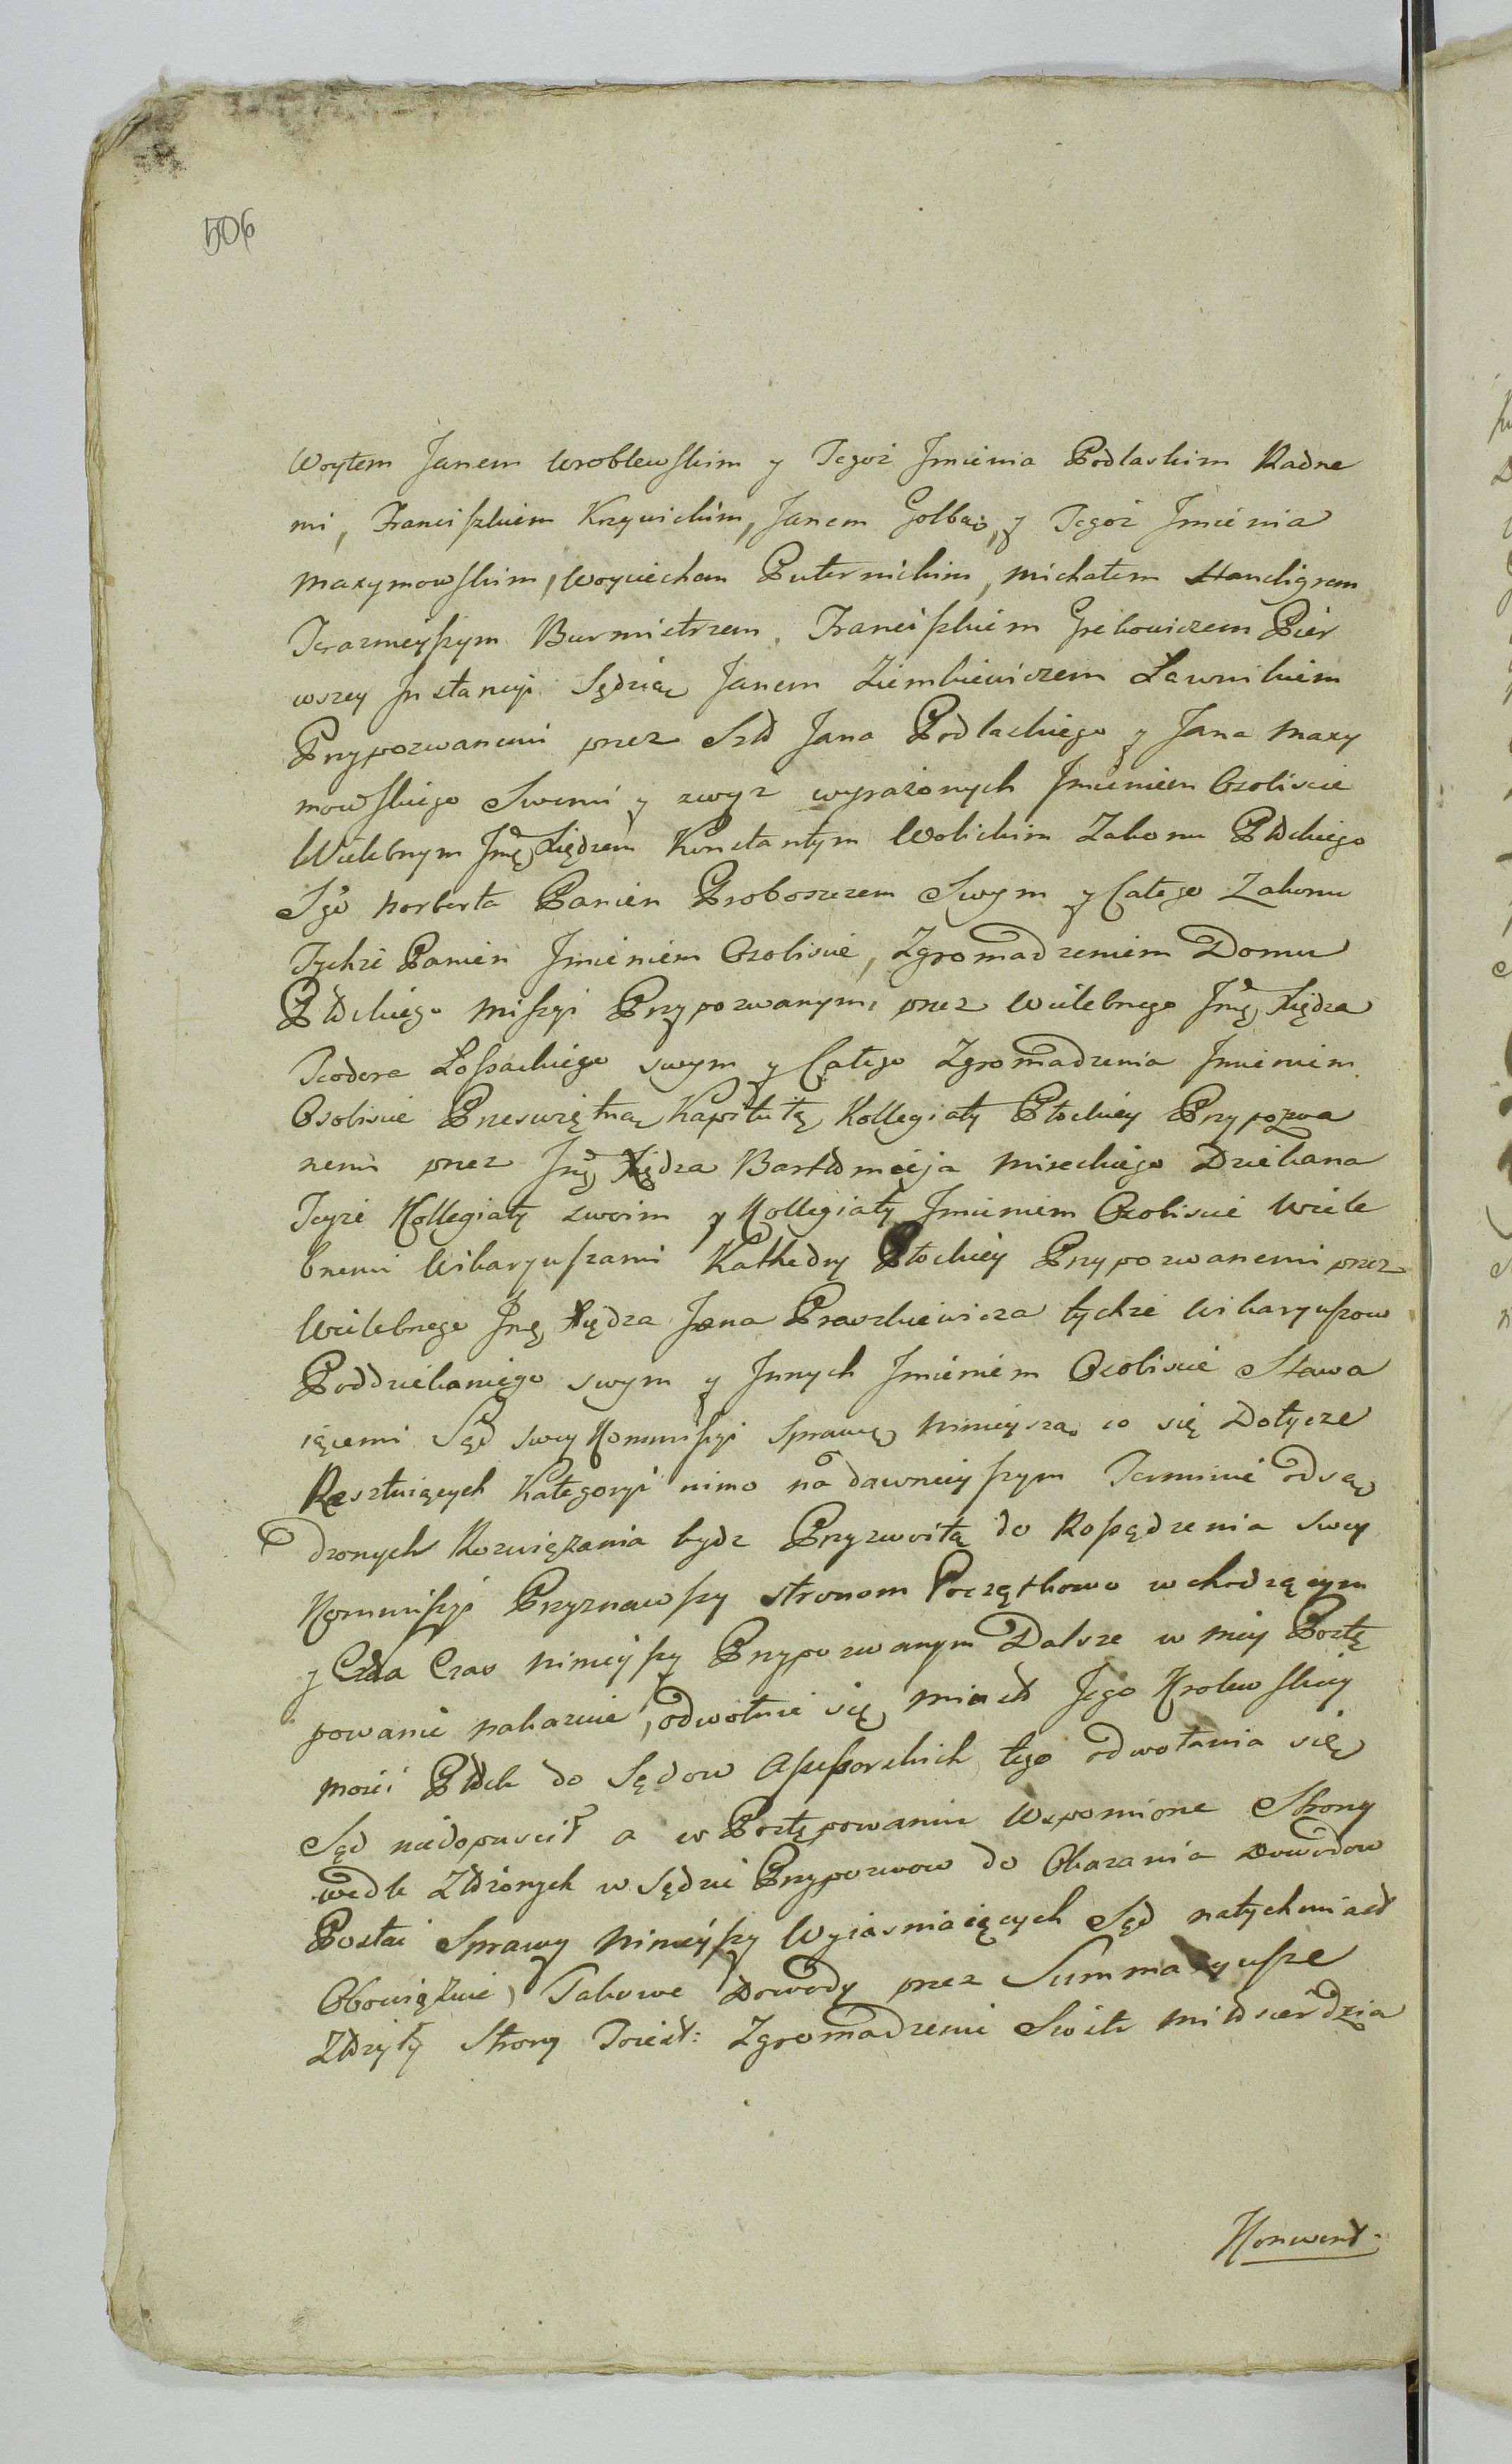 506
Woytem Janem Wroblewskim y Tegoż Jmienia Podlaskim Radne
mi, Franciszkiem Krzywickim, Janem Gołbą, y Tegoż Jmienia
Maxymowskim, Woyciechem Puternickim, Michałem Handigrem
Teraznieyszym Burmistrzem, Franciszkiem Grekowiczem Pier
wszey Jnstancyi Sędzią Janem Ziembiewiczem Ławnikiem
Przypozwanemi przez Jana Podlackiego y Jana Maxy
mowskiego Swemi y zwyz wyrażonych Jmieniem Osoliscie
Wielebnym Jmę Xiędzem Konstantym Wolickim Zakonu Płockiego
Sgo Norberta Panien Proboszczem Swym y Całego Zakonu
Tychże Panien Jmieniem Osoliscie, Zgromadzeniem Domu
Płockiego Missyi Przypozwanym, przez Wielebnego Jmę Xiędza
Teodora Łossackiego swym y Całego Zgromadzenia Jmieniem
Osoliscie Przeswiętną Kapitułą Kollegiaty Płockiey Przypozwa
nemi przez Jmę Xiędza Bartłomieja Miseckiego Dziekana
Teyże Kollegiaty swoim y Kollegiaty Jmieniem Osoliscie Wiele
bnemi Wikaryuszami Kathedry Płockiey Przypozwanemi przez
Wielebnego Jmę Xiędza Jana Praszkiewicza tychże Wikaryuszow
Poddziekaniego swym y Jnnych Jmieniem Osoliscie Stawa
iącemi Sąd swey Kommissyi Sprawę Ninieyszą co się Dotycze
Resztuiących Kategoryi nimo na dawnieyszym Terminie odsą
dzonych Rozwiązania bydz Przyzwoitą do Rossądzenia swey
Kommissyi Przyznawszy stronom Początkowo wchodzącym
y Czas Ninieyszy Przypozwanym Dalsze w niey Postę
powanie nakazuie, odwołuie się Miasto Jego Krolewskiey
Mości Płock do Sądow Assessorskich tego odwołania się
Sąd niedopuscił a w Postępowaniu Wspomione Strony
wedle Złożonych w Sądzie Przypozwow do Okazania Dowodow
Postać Sprawy Ninieyszy Wyiasniaiących Sąd natychmiast
Obowiązuie, Takowe Dowody przez Summaryusze
Złożyły Strony Toiest: Zgromadzenie Swięte Miłosierdzia
Konwent.